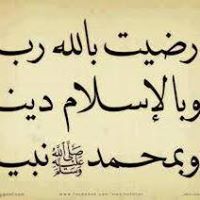 رضيت بالله رب
وبالإسلام دين
وبمحمد ﷺ نبي